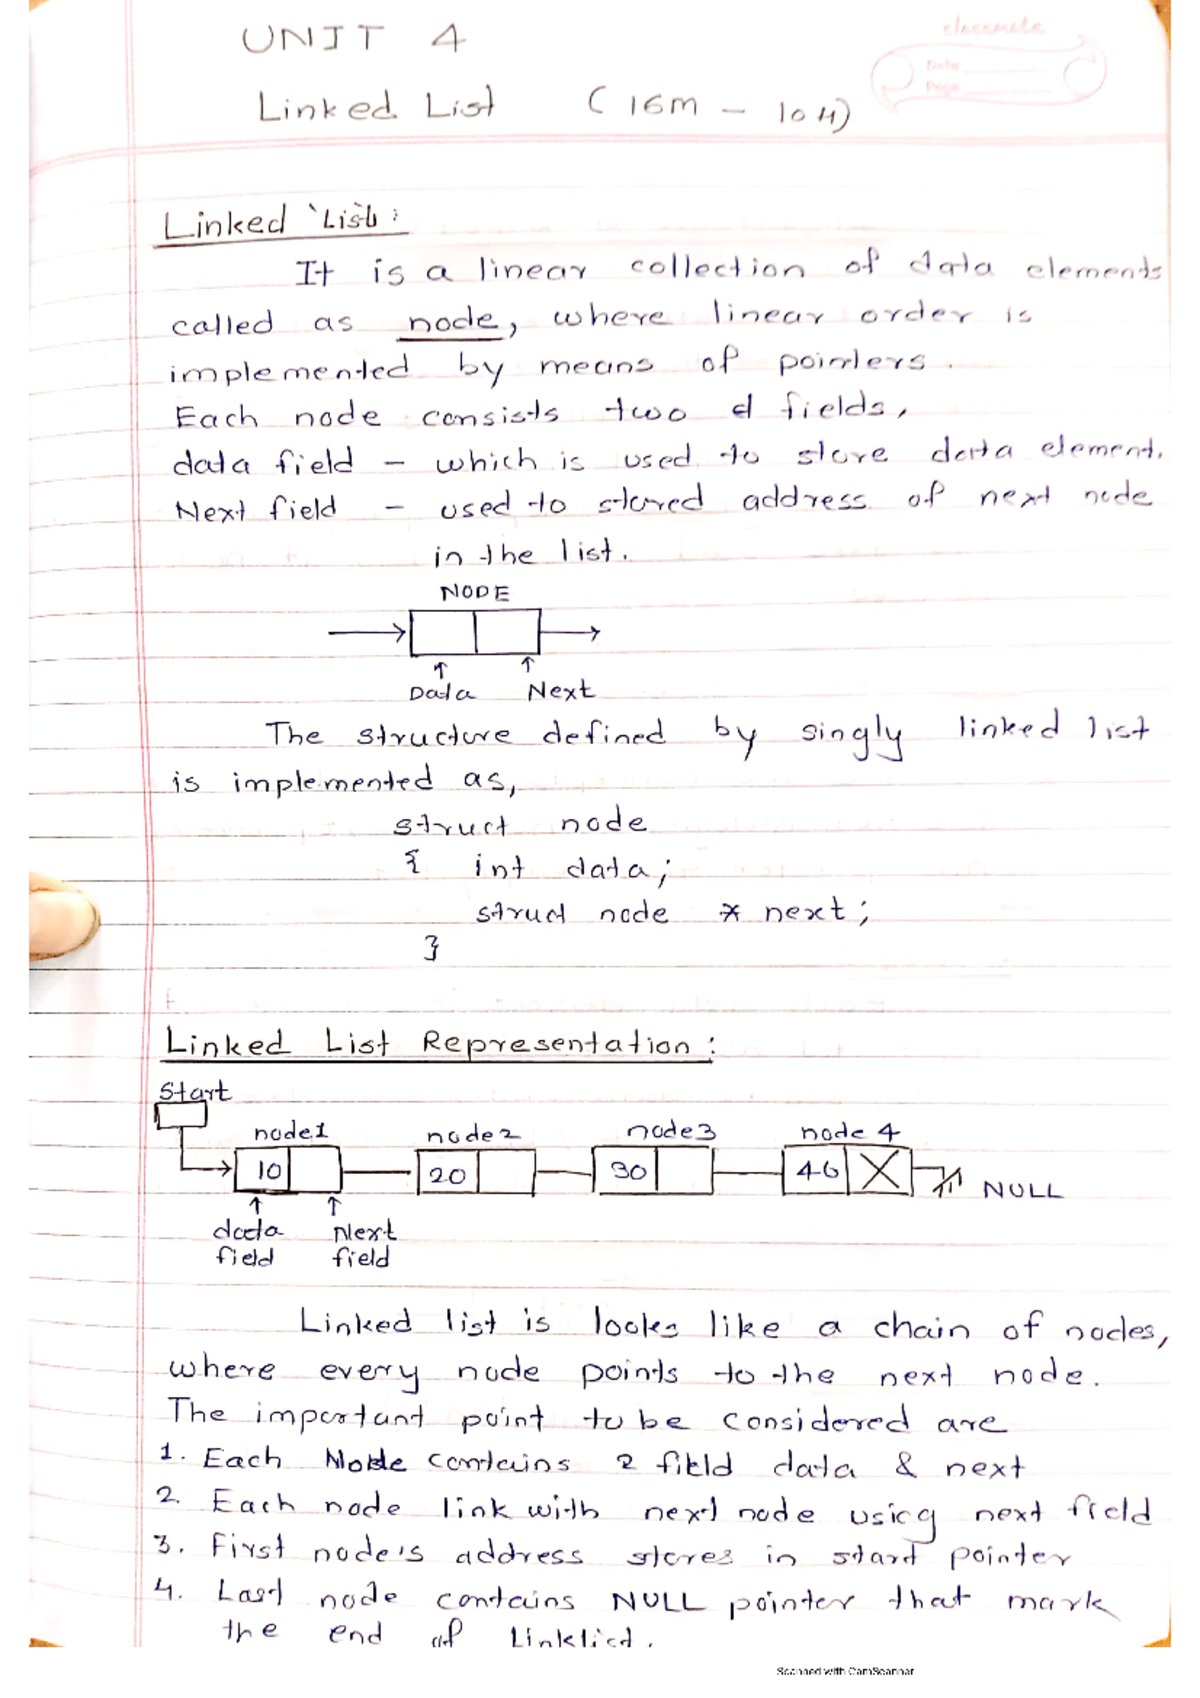 UNIT 4
classmate
Date
Page
Linked List (16M - 10H)
Linked List:
It is a linear collection of data elements
called as node, where linear order is
implemented by means of pointers.
Each node consists two d fields,
data field - which is used to store data element.
Next field - used to stored address of next node
in the list.
NODE
Data Next
The structure defined by singly linked list
is implemented as,
struct node
{ int data;
struct node * next;
}
Linked List Representation:
Start
node1 node2 node3 node 4
10 20 30 40 X NULL
data Next
field field
Linked list is looks like a chain of nodes,
where every node points to the next node.
The important point to be considered are
1. Each Node contains 2 field data & next
2. Each node link with next node using next field
3. First node's address stores in start pointer
4. Last node contains NULL pointer that mark
the end of Linklist.
Scanned with CamScanner